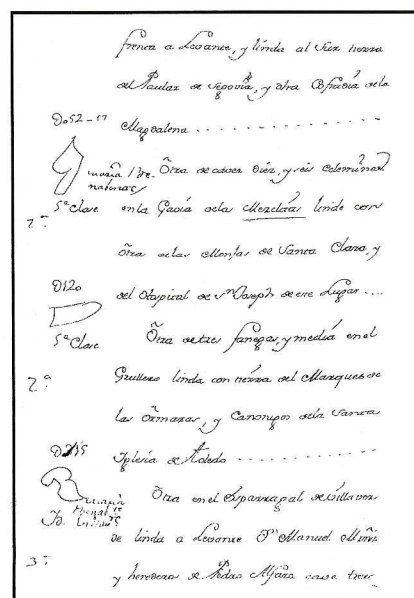 frente a Levante, y linda al Sur tierra
del Paular de Segovia, y otra Cofradia de la
Do52-17
Magdalena . . . . . . . . . . . . . . .
maria Be-
nabines
Otra de caver diez, y seis celemines
5ª Clase
en la Gavia de las Mezclas linde con
2ª
otra de las Monjas de Santa Clara, y
D120
del Ospital de Sn Joseph de este Lugar....
5ª Clase
Otra de tres fanegas, y media en el
2ª
Guillero linda con tierra del Marques de
las Ormazas, y Canonigos de la Santa
Iglesia de Toledo . . . . . . . . . . . . .
Otra en el Esparragal de Villaver
de linda a Levante Dn Manuel
3ª
y herederos de Pedro Alfaro cave tres